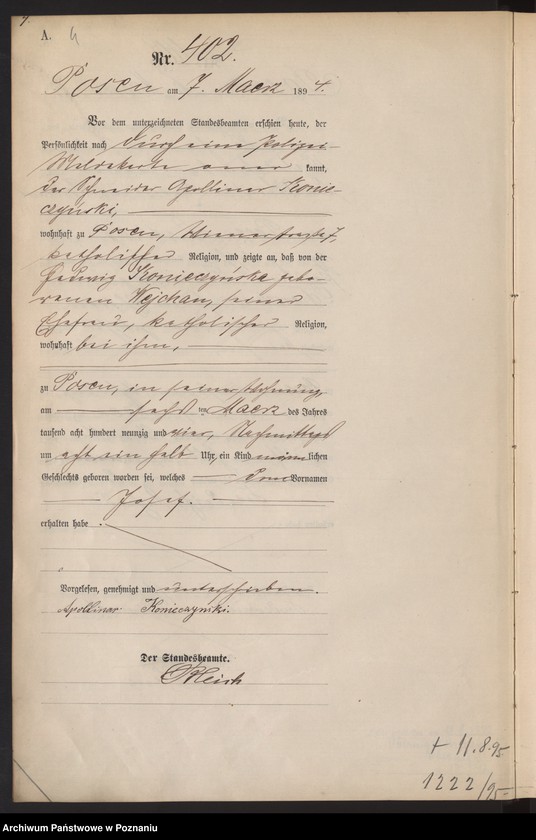 A.
Nr. 402.
Posen am 7. Maerz 1894.
Vor dem unterzeichneten Standesbeamten erschien heute, der
Persönlichkeit nach durch eine Polizei-
Meldekarte aner kannt,
der Schneider Apollinar Konie-
czyński,
wohnhaft zu Posen, Wienerstraße 7,
katholischer Religion, und zeigte an, daß von der
Hedwig Konieczyńska gebo-
renen Wejchan, seiner
Ehefrau, katholischer Religion,
wohnhaft bei ihm,
zu Posen, in seiner Wohnung,
am sechs ten Maerz des Jahres
tausend acht hundert neunzig und vier, Nachmittags
um acht ein halb Uhr, ein Kind männlichen
Geschlechts geboren worden sei, welches den Vornamen
Josef.
erhalten habe.
Vorgelesen, genehmigt und unterschrieben.
Apollinar Konieczynski.
Der Standesbeamte.
+ 11.8.95
1222/95
Archiwum Państwowe w Poznaniu